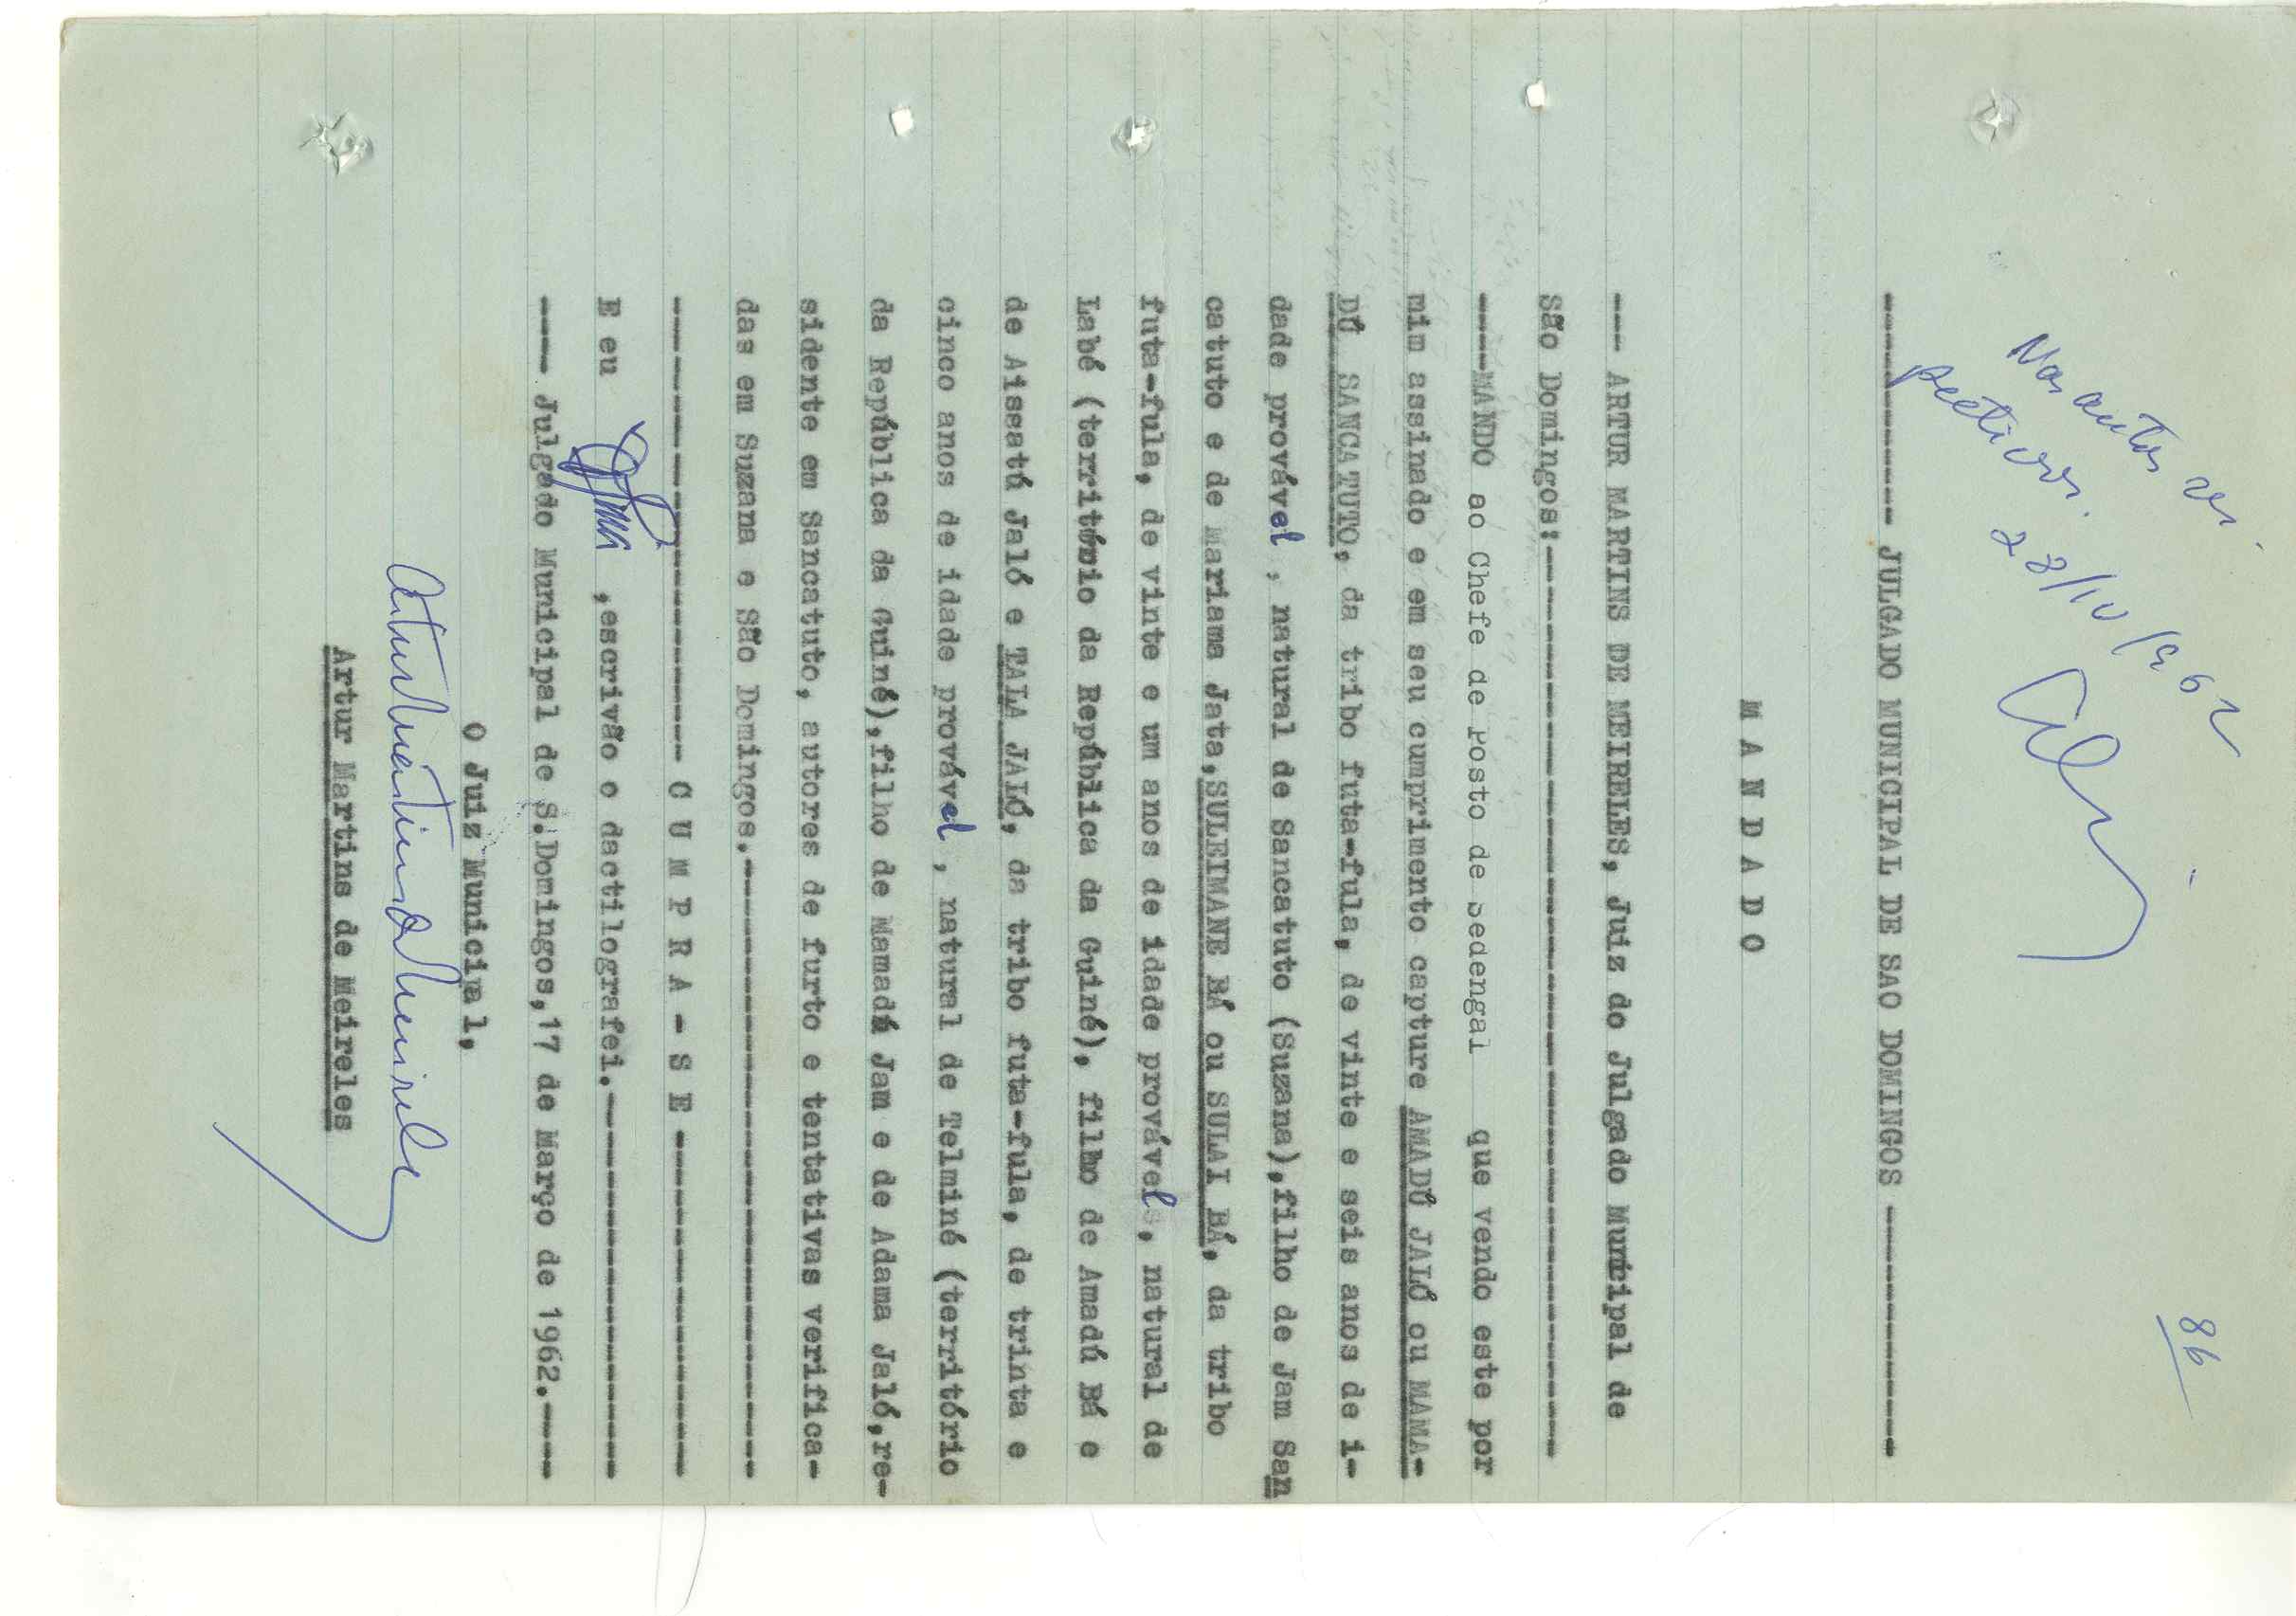 86
Nos autos res-
pectivos.
28/10/962
---------- JULGADO MUNICIPAL DE SAO DOMINGOS -----------
M A N D A D O
--- ARTUR MARTINS DE MEIRELES, Juiz do Julgado Municipal de
São Domingos:---------------------------------------------
----MANDO ao Chefe de Posto de Sedengal que vendo este por
mim assinado e em seu cumprimento capture AMADÚ JALÓ ou MAMA-
DÚ SANCATUTO, da tribo futa-fula, de vinte e seis anos de i-
dade provável , natural de Sancatuto (Suzana),filho de Jam San
catuto e de Mariama Jata,SULEIMANE BÁ ou SULAI BÁ, da tribo
futa-fula, de vinte e um anos de idade provável, natural de
Labé (território da República da Guiné), filho de Amadú Bá e
de Aissatú Jaló e TALA JALÓ, da tribo futa-fula, de trinta e
cinco anos de idade provável , natural de Telminé (território
da República da Guiné),filho de Mamadú Jam e de Adama Jaló,re-
sidente em Sancatuto, autores de furto e tentativas verifica-
das em Suzana e São Domingos.------------------------------
---------------------- C U M P R A - S E ------------------
E eu ,escrivão o dactilografei.--------------------
---- Julgado Municipal de S.Domingos,17 de Março de 1962.----
O Juiz Municipal,
Artur Martins de Meireles
Artur Martins de Meireles